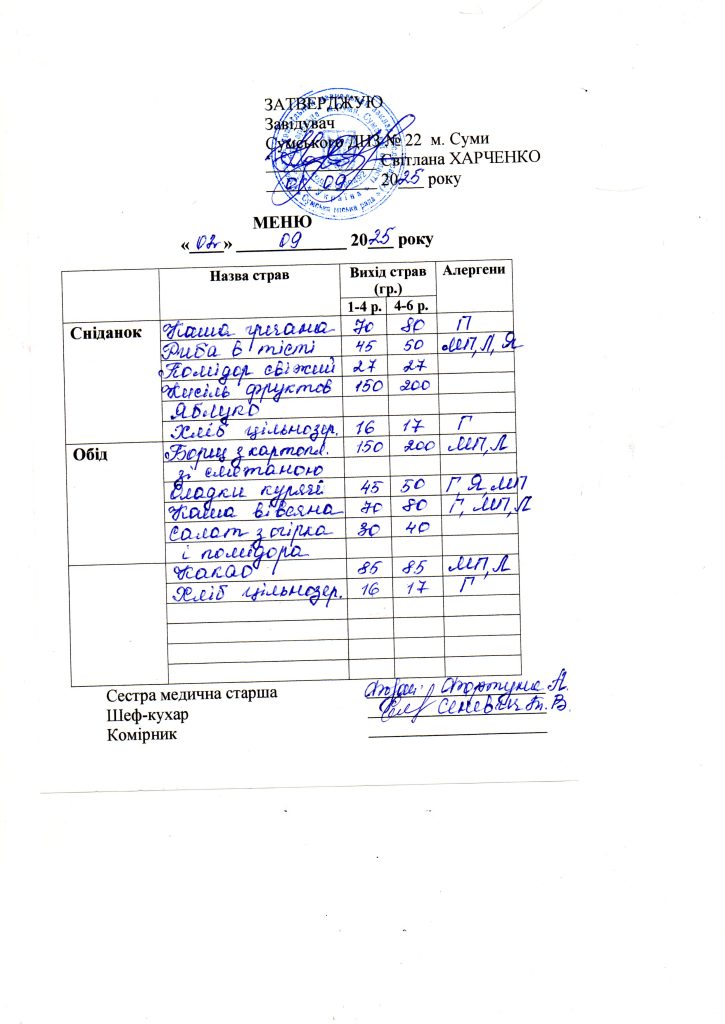 ЗАТВЕРДЖУЮ
Завідувач
Сумського ДНЗ № 22 м. Суми
Світлана ХАРЧЕНКО
01 09 2025 року
МЕНЮ
«02» 09 2025 року
Назва страв Вихід страв (гр.) Алергени
1-4 р. 4-6 р.
Сніданок Каша гречана 70 80 Г
Риба в тісті 45 50 МП, Л, Я
Помідор свіжий 27 27
Кисіль фруктов 150 200
Яблуко
Хліб цільнозер. 16 17 Г
Обід Борщ з картопл. 150 200 МП, Л
зі сметаною
Оладки курячі 45 50 Г, Я, МП
Каша вівсяна 70 80 Г, МП, Л
Салат з огірка 30 40
і помідора
Какао 85 85 МП, Л
Хліб цільнозер. 16 17 Г
Сестра медична старша А.
Шеф-кухар В.
Комірник